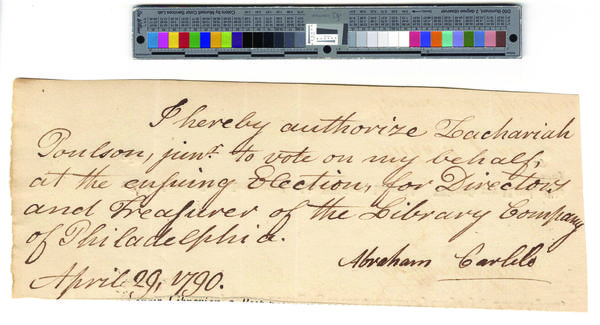 I hereby authorize Zachariah
Poulson, junr. to vote on my behalf,
at the ensuing Election, for Directors
and Treasurer of the Library Company
of Philadelphia.
Abraham Carlile
April 29, 1790.